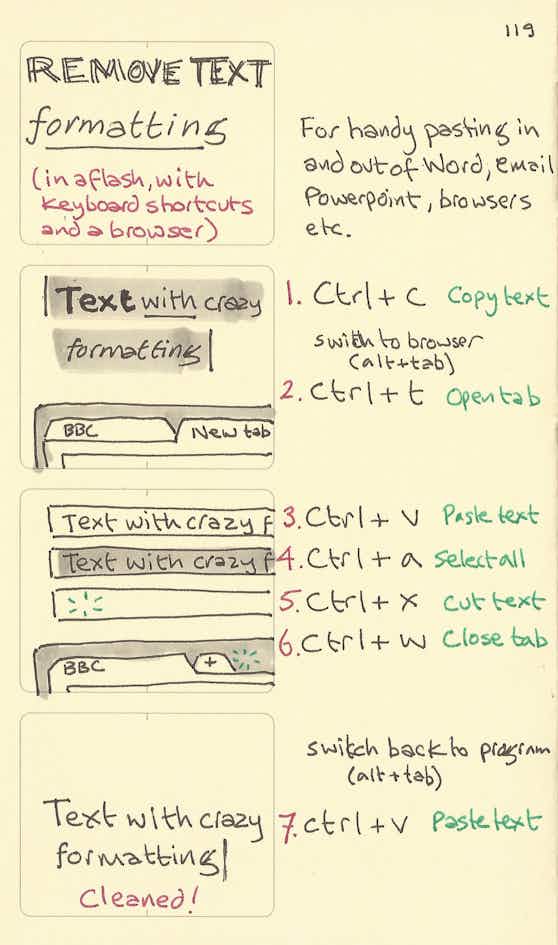 119
REMOVE TEXT
formatting
(in a flash, with
keyboard shortcuts
and a browser)
For handy pasting in
and out of Word, email
Powerpoint, browsers
etc.
Text with crazy
formatting
BBC
New tab
1. Ctrl + C Copy text
switch to browser
(alt+tab)
2. Ctrl + t Open tab
Text with crazy f
3. Ctrl + v Paste text
Text with crazy f
4. Ctrl + a Select all
5. Ctrl + x Cut text
BBC
+
6. Ctrl + w Close tab
switch back to program
(alt+tab)
Text with crazy
formatting
Cleaned!
7. Ctrl + v Paste text